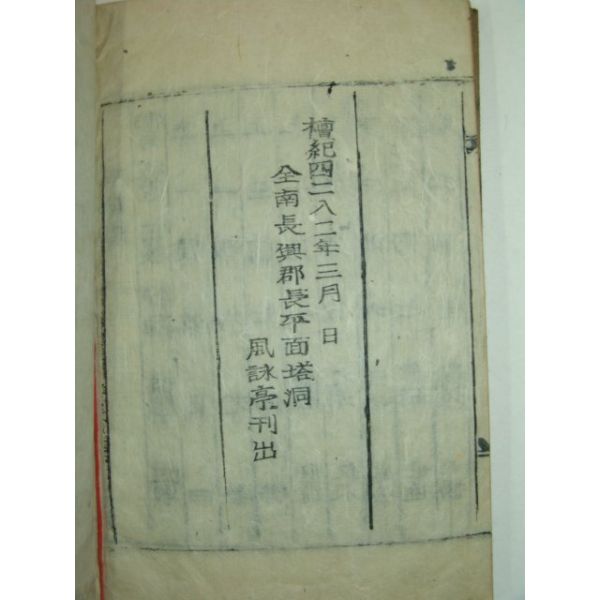 檀紀四二八二年三月 日
全南長興郡長平面塔洞
風詠亭刊出